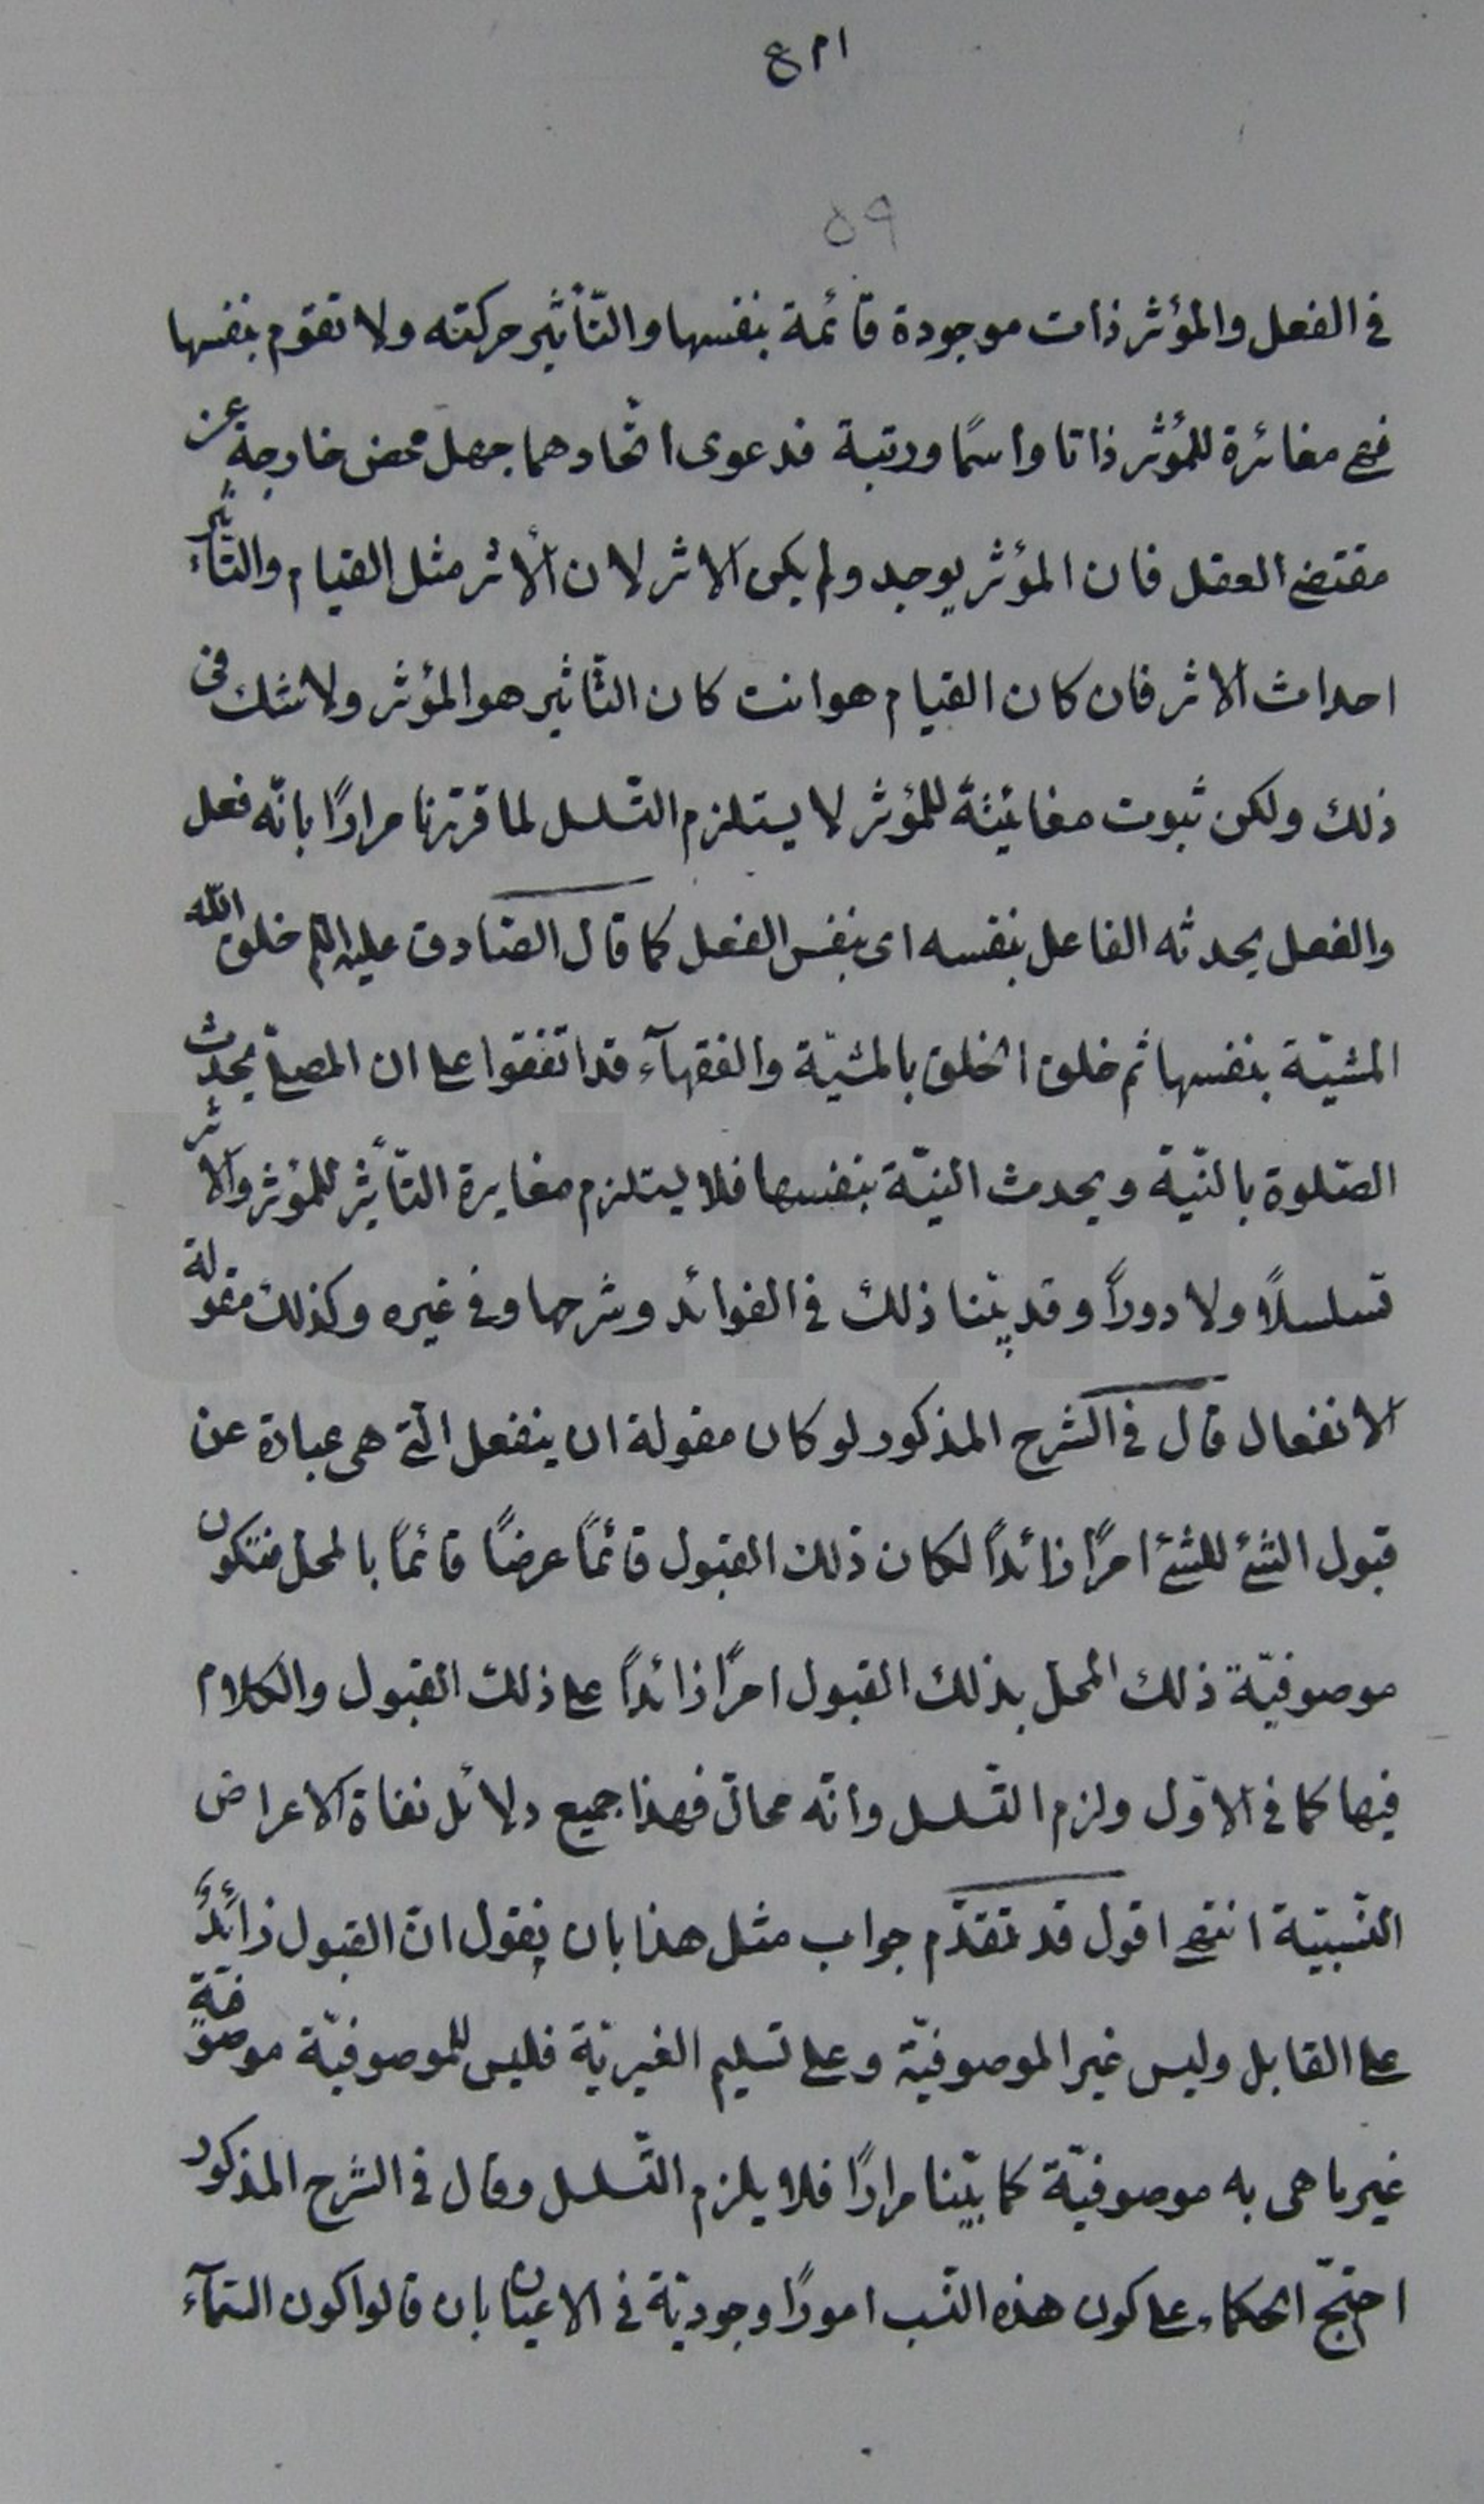 ٥٩
في الفعل والمؤثر ذات موجودة قائمة بنفسها والتّأثير حركته ولا تقوم بنفسها
فهي مغائرة للمؤثر ذاتا واسمًا ورتبة فدعوى اتّحادهما جهل محض خارجة عن
مقتضى العقل فان المؤثر يوجد ولم يكن الاثر لان الأثر مثل القيام والتّأثير
احداث الاثر فان كان القيام هو انت كان التّاثير هو المؤثر ولا شك في
ذلك ولكن ثبوت مغائيّته للمؤثر لا يستلزم التّسلسل لما قرّرنا مرارًا بانّه فعل
والفعل يحدثه الفاعل بنفسه اى بنفس الفعل كما قال الصّادق عليه السّلم خلق الله
المشيّة بنفسها ثم خلق الخلق بالمشيّة والفقهآء قد اتّفقوا على ان المصلّي يحدث
الصّلوة بالنّيّة ويحدث النيّة بنفسها فلا يستلزم مغايرة التّأثير للمؤثر والاثر
تسلسلًا ولا دورًا وقد بيّنا ذلك في الفوائد وشرحها وفي غيره وكذلك مقولة
الانفعال قال في الشرح المذكور لو كان مقولة ان ينفعل الّتي هى عبارة عن
قبول الشئ للشئ امرًا زائدًا لكان ذلك القبول قائمًا عرضًا قائمًا بالمحل فتكون
موصوفيّة ذلك المحل بذلك القبول امرًا زائدًا على ذلك القبول والكلام
فيها كما في الاوّل ولزم التّسلسل وانّه محال فهذا جميع دلائل نفاة الاعراض
النّسبيّة انتهى اقول قد تقدّم جواب مثل هذا بان نقول انّ القبول زائدٌ
على القابل وليس غير الموصوفيّة وعلى تسليم الغيريّة فليس للموصوفيّة موصوفيّة
غير ما هى به موصوفيّة كما بيّنا مرارًا فلا يلزم التّسلسل وقال في الشرح المذكور
احتجّ الحكماء على كون هذه النّسب امورًا وجوديّة في الاعيان بان قالوا كون السّمآء